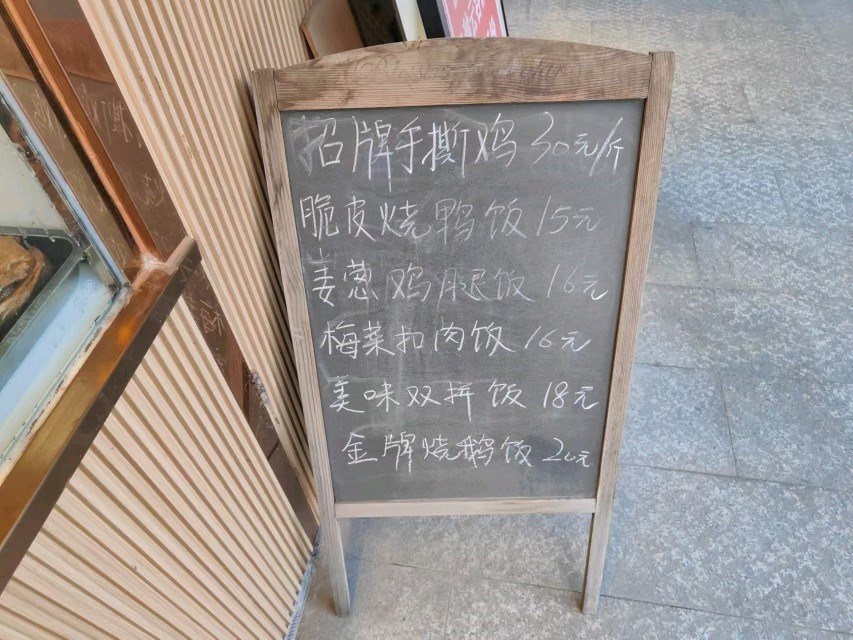 招牌手撕鸡30元/斤
脆皮烧鸭饭15元
姜葱鸡腿饭16元
梅菜扣肉饭16元
美味双拼饭18元
金牌烧鹅饭20元